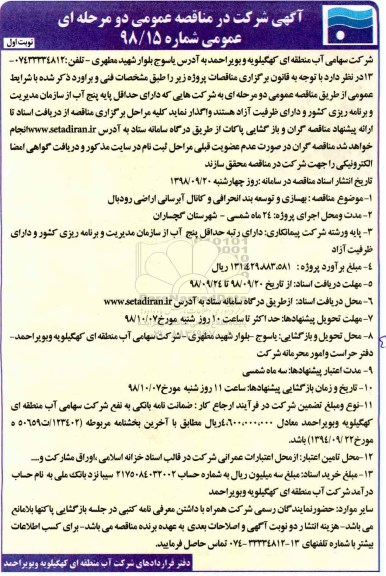 آگهی شرکت در مناقصه عمومی دو مرحله ای
عمومی شماره ۹۸/۱۵
نوبت اول
شرکت سهامی آب منطقه ای کهگیلویه و بویراحمد به آدرس یاسوج بلوار شهید مطهری - تلفن: ۰۷۴۳۳۳۳۴۸۱۲-
۱۳ در نظر دارد با توجه به قانون برگزاری مناقصات پروژه زیر را طبق مشخصات فنی و برآورد ذکر شده با شرایط
عمومی از طریق مناقصه عمومی دو مرحله ای به شرکت هایی که دارای حداقل پایه پنج آب از سازمان مدیریت
و برنامه ریزی کشور و دارای ظرفیت آزاد هستند واگذار نماید کلیه مراحل برگزاری مناقصه از دریافت اسناد تا
ارائه پیشنهاد مناقصه گران و بازگشایی پاکات از طریق درگاه سامانه ستاد به آدرس www.setadiran.ir انجام
خواهد شد مناقصه گران در صورت عدم عضویت قبلی مراحل ثبت نام در سایت مذکور و دریافت گواهی امضا
الکترونیکی را جهت شرکت در مناقصه محقق سازند
تاریخ انتشار اسناد مناقصه در سامانه: روز چهارشنبه ۱۳۹۸/۰۹/۲۰
۱- موضوع مناقصه: بهسازی و توسعه بند انحرافی و کانال آبرسانی اراضی رودبال
۲- مدت و محل اجرای پروژه: ۲۴ ماه شمسی - شهرستان گچساران
۳- پایه و رشته شرکت پیمانکاری: دارای رتبه حداقل پنج آب از سازمان مدیریت و برنامه ریزی کشور و دارای
ظرفیت آزاد
۴- مبلغ برآورد پروژه: ۱۳۱،۴۲۹،۸۸۳،۵۸۱ ریال
۵- مهلت دریافت اسناد: از تاریخ ۹۸/۰۹/۲۰ تا ۹۸/۰۹/۲۴
۶- محل دریافت اسناد: از طریق درگاه سامانه ستاد به آدرس www.setadiran.ir
۷- مهلت تحویل پیشنهادها: حداکثر تا ساعت ۱۰ روز شنبه مورخ ۹۸/۱۰/۰۷
۸- محل تحویل و بازگشایی: یاسوج - بلوار شهید مطهری - شرکت سهامی آب منطقه ای کهگیلویه و بویراحمد-
دفتر حراست و امور محرمانه شرکت
۹- مدت اعتبار پیشنهادها: سه ماه شمسی
۱۰- تاریخ و زمان بازگشایی پیشنهادها: ساعت ۱۱ روز شنبه مورخ ۹۸/۱۰/۰۷
۱۱- نوع و مبلغ تضمین شرکت در فرآیند ارجاع کار: ضمانت نامه بانکی به نفع شرکت سهامی آب منطقه ای
کهگیلویه و بویراحمد معادل ۴،۶۰۰،۰۰۰،۰۰۰ ریال مطابق با آخرین بخشنامه مربوطه (۱۲۳۴۰۲/ت ۵۰۶۵۹ ه
مورخ ۱۳۹۴/۰۹/۲۲) باشد.
۱۲- محل تامین اعتبار: از محل اعتبارات عمرانی شرکت در قالب اسناد خزانه اسلامی، اوراق مشارکت و....
۱۳- مبلغ خرید اسناد: مبلغ سه میلیون ریال به شماره حساب ۲۱۷۵۰۸۴۰۳۲۰۰۲ سیبا نزد بانک ملی به نام حساب
درآمد شرکت آب منطقه ای کهگیلویه و بویراحمد
سایر موارد: حضور نمایندگان رسمی شرکت همراه با داشتن معرفی نامه کتبی در جلسه بازگشایی پاکتها بلامانع
می باشد- هزینه انتشار دو نوبت آگهی و اصلاحات بعدی به عهده برنده مناقصه می باشد- برای کسب اطلاعات
بیشتر با شماره تلفنهای ۱۳-۳۳۳۳۴۸۱۲-۰۷۴ تماس حاصل فرمایید.
دفتر قراردادهای شرکت آب منطقه ای کهگیلویه و بویراحمد